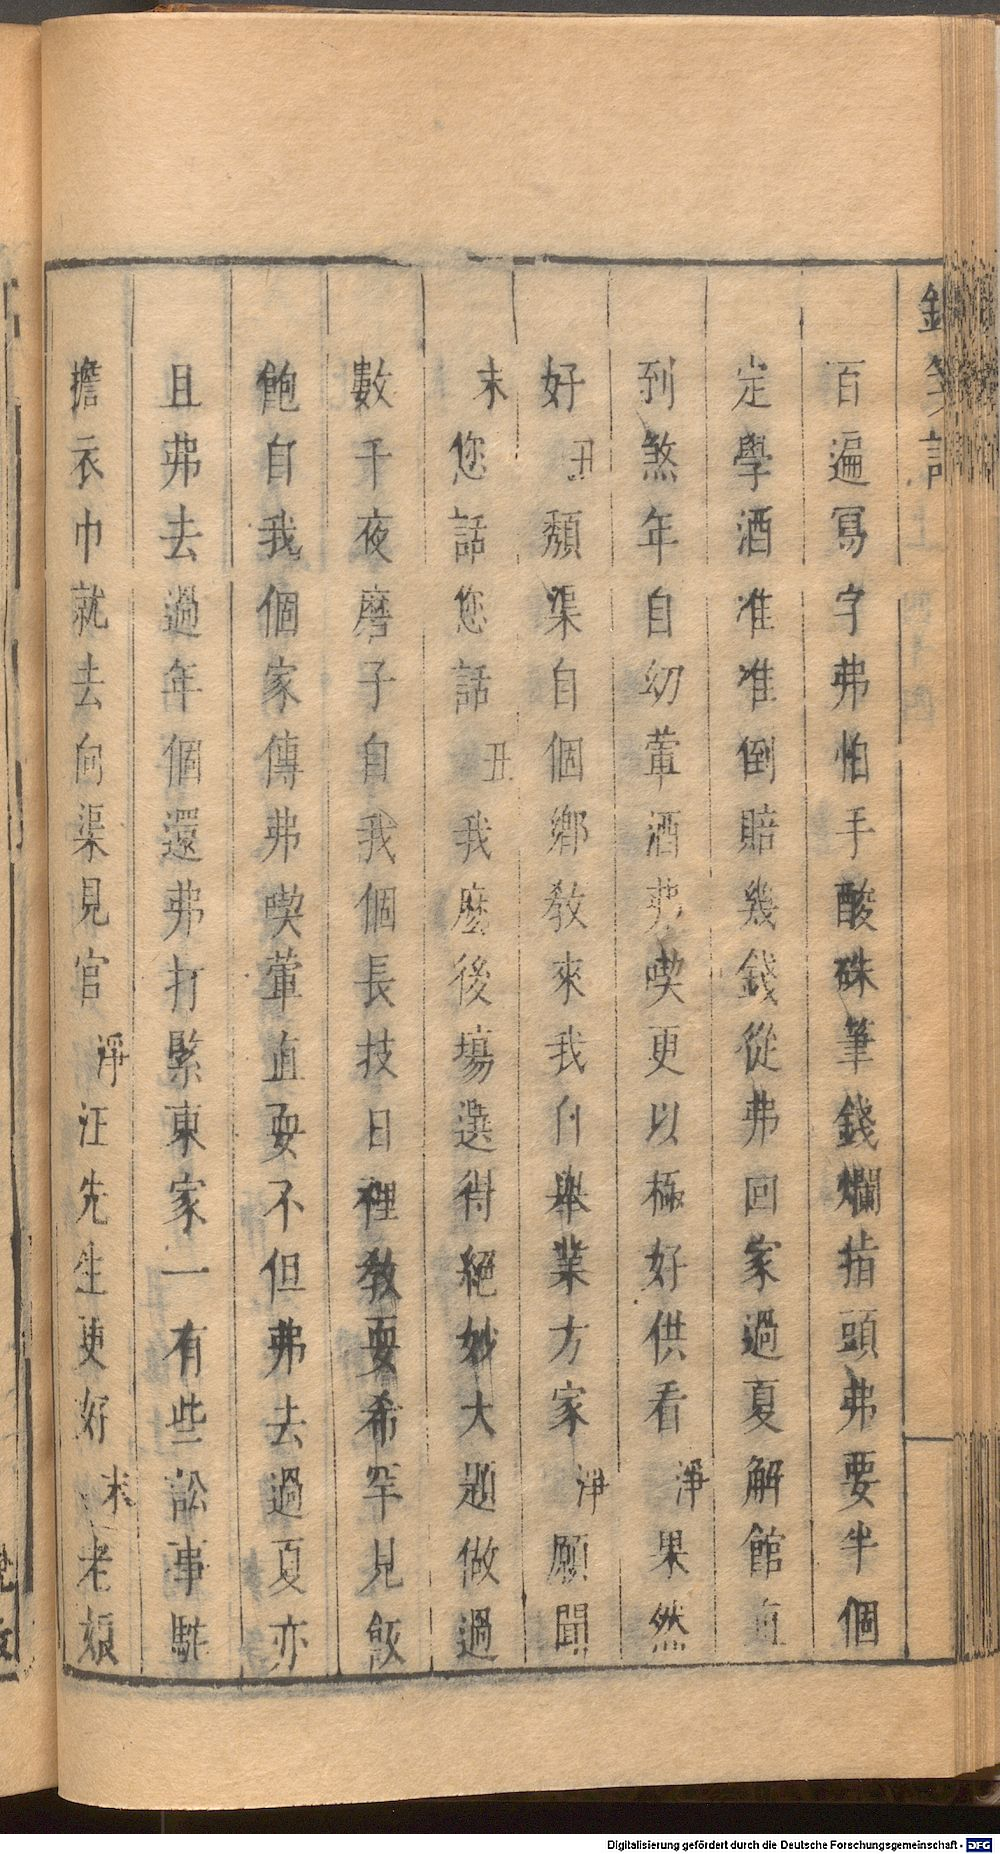 百遍寫字弗怕手酸硃筆錢爛指頭弗要半個
定學酒准准倒賠幾錢從弗回家過夏解館直
到煞年自幼葷酒弗喫更以極好供看淨果然
好丑頺渠自個鄉敎來我自舉業方家淨願聞
末您話您話丑我麽後塲選得絕妙大題做過
數千夜磨子自我個長技日裡敎耍希罕見飯
飽自我個家傳弗喫葷直耍不但弗去過夏亦
且弗去過年個還弗打緊東家一有些訟事駢
擔衣巾就去向渠見官淨汪先生更好末老娘
Digitalisierung gefördert durch die Deutsche Forschungsgemeinschaft - DFG